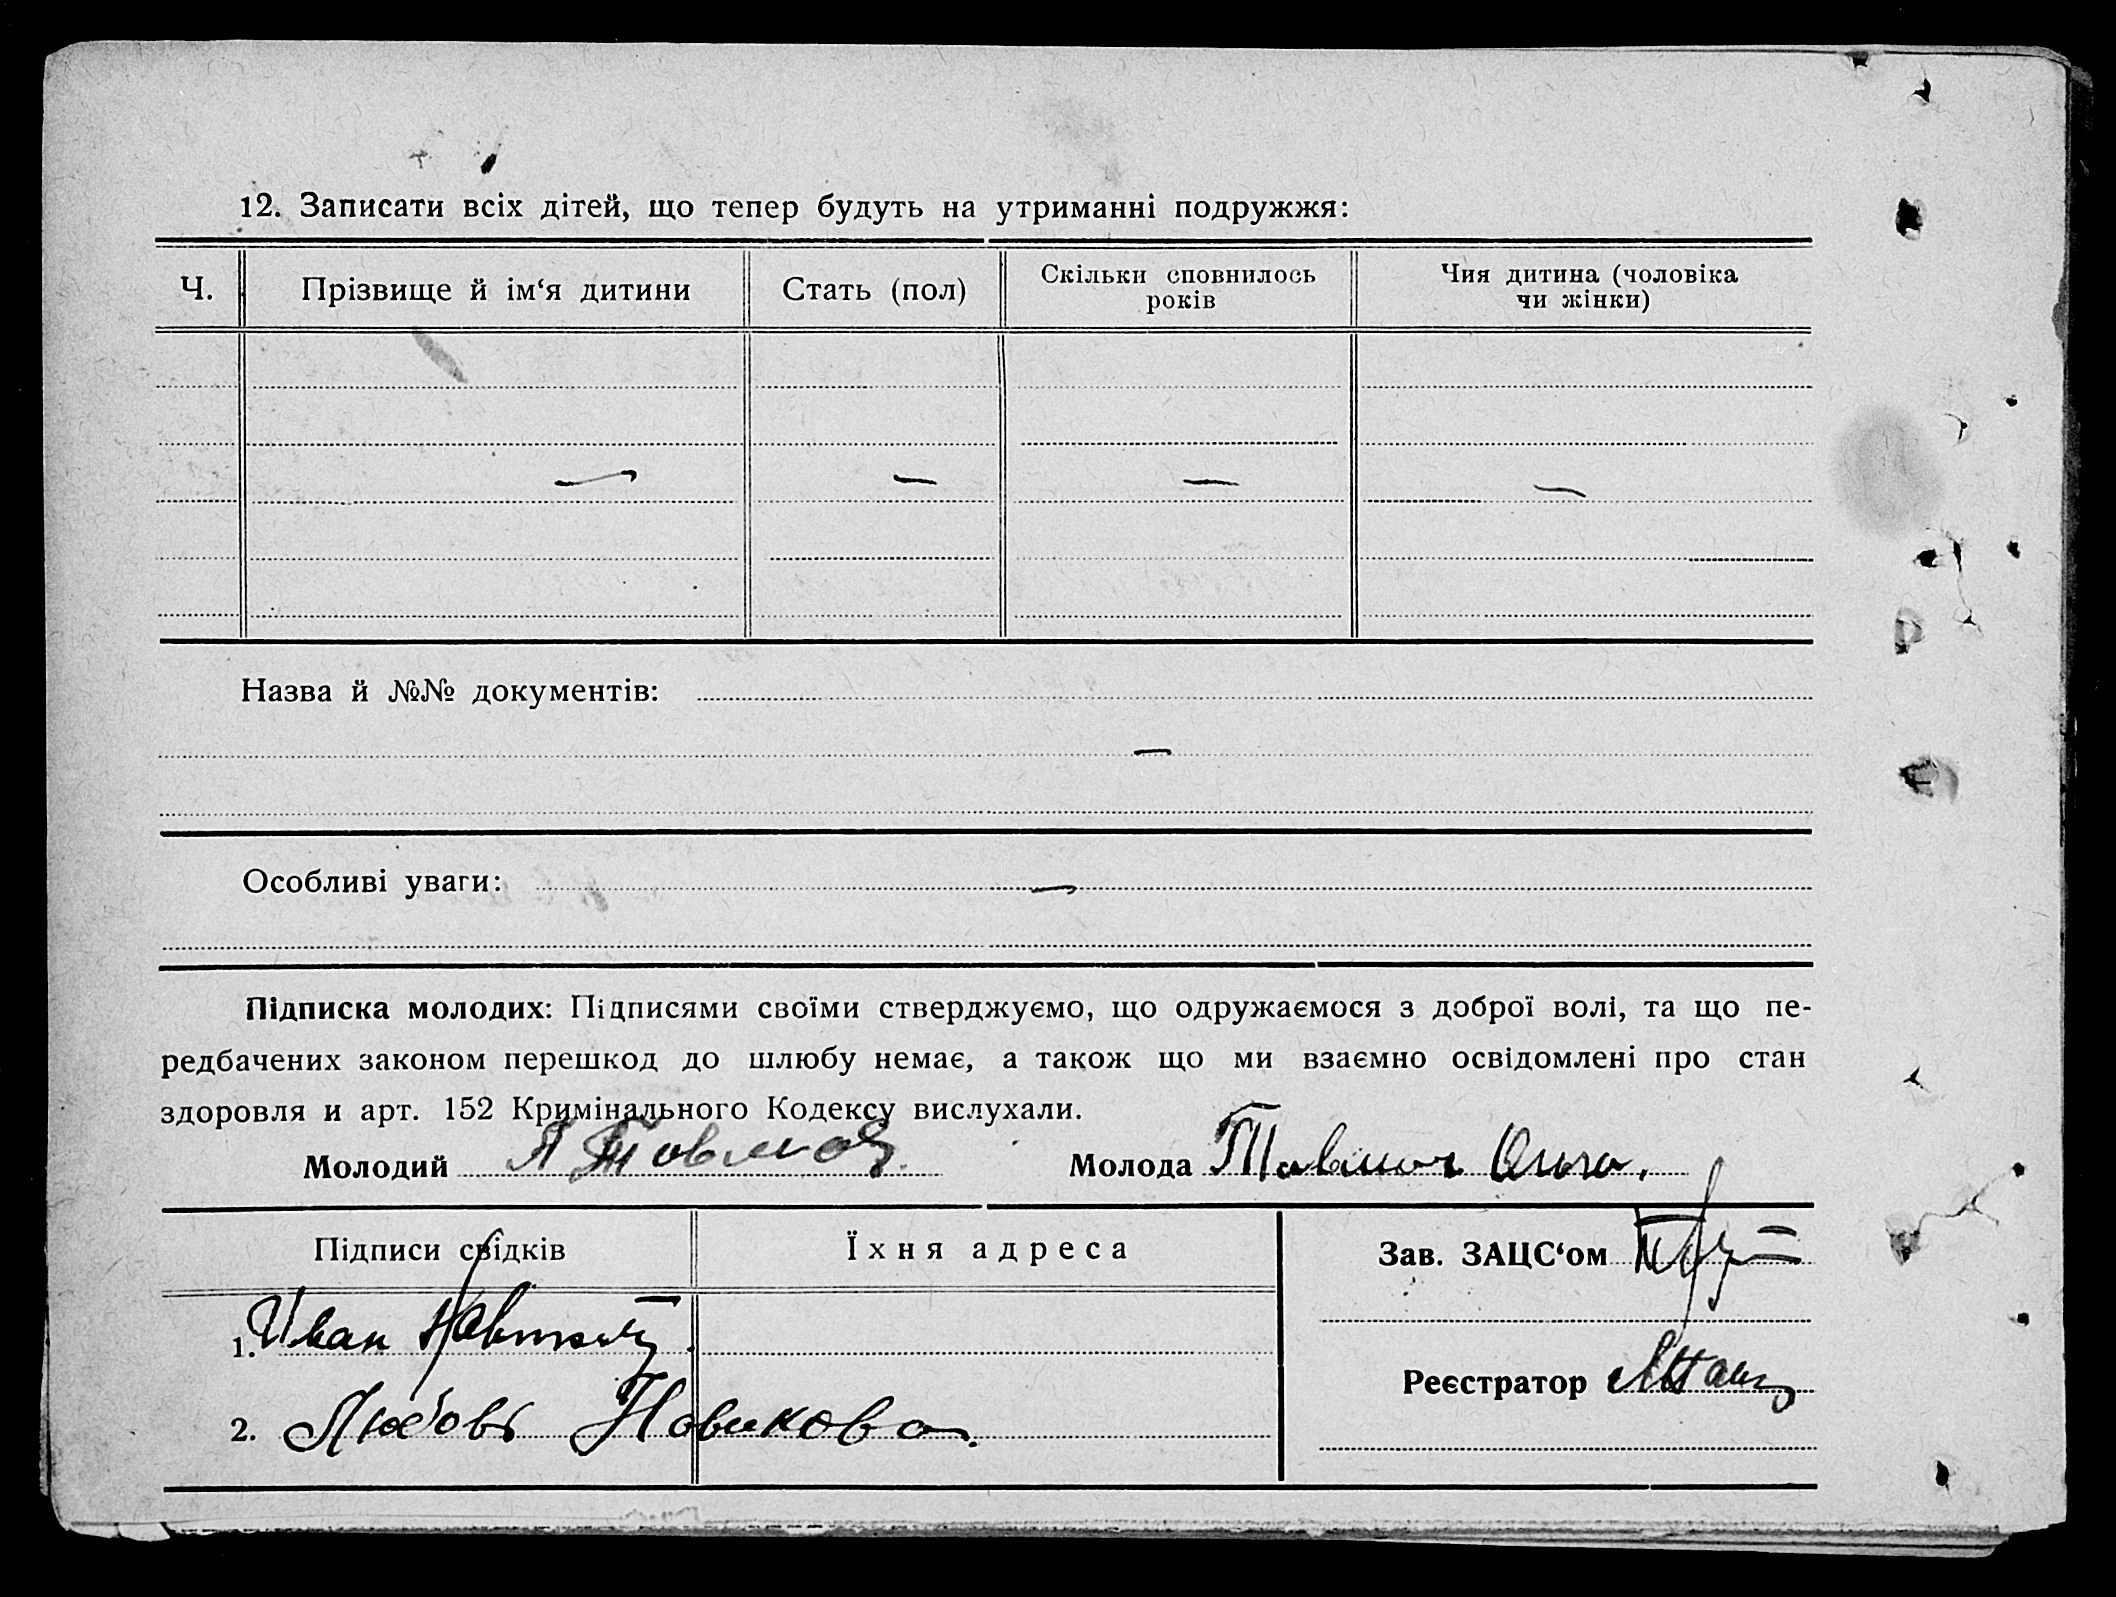 12. Записати всіх дітей, що тепер будуть на утриманні подружжя:
Ч. Прізвище й ім‘я дитини Стать (пол) Скільки сповнилось років Чия дитина (чоловіка чи жінки)
— — — —
Назва й №№ документів:
—
Особливі уваги: —
Підписка молодих: Підписями своїми стверджуємо, що одружаємося з доброї волі, та що пе-
редбачених законом перешкод до шлюбу немає, а також що ми взаємно освідомлені про стан
здоровля и арт. 152 Кримінального Кодексу вислухали.
Молодий Молода
Підписи свідків Їхня адреса Зав. ЗАЦС‘ом
1. Иван
Реєстратор
2. Любовь Новикова.